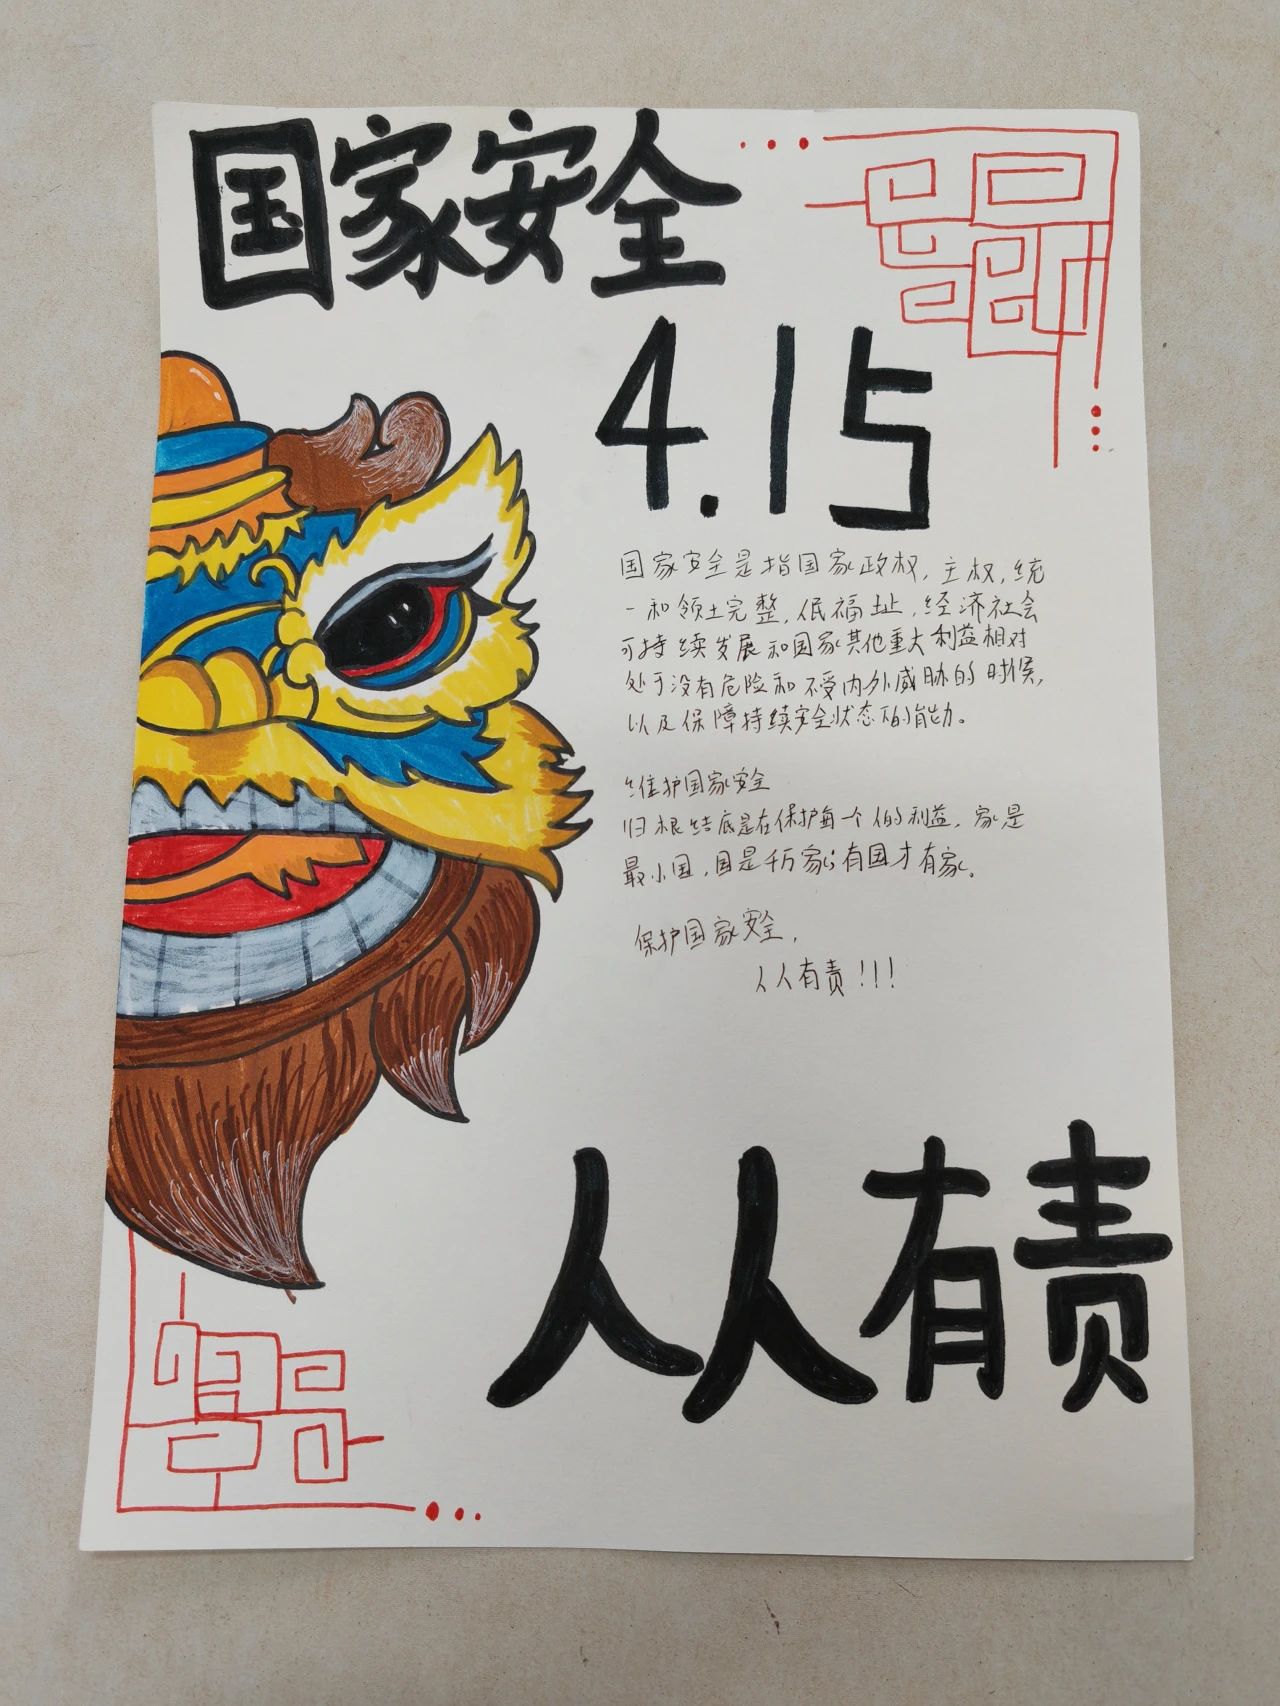 国家安全
4.15
国家安全是指国家政权,主权,统
一和领土完整,民福祉,经济社会
可持续发展和国家其他重大利益相对
处于没有危险和不受内外威胁的时候,
以及保障持续安全状态的能力。
维护国家安全
归根结底是在保护每一个人的利益,家是
最小国,国是千万家;有国才有家。
保护国家安全,
人人有责!!!
人人有责